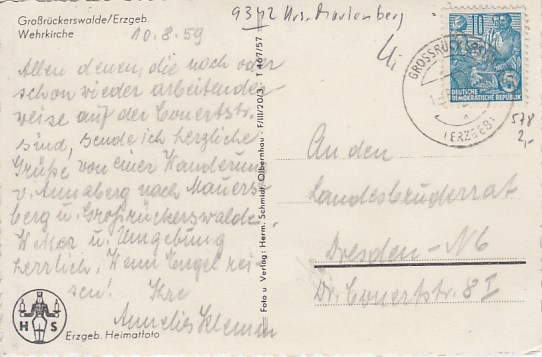 Großrückerswalde/Erzgeb.
Wehrkirche
9342 Krs. Marienberg
10.8.59
Allen denen, die noch oder
schon wieder arbeitender-
weise auf der Conertstr.
sind, sende ich herzliche
Grüße von einer Wanderung
v. Annaberg nach Mauers-
berg u. Großrückerswalde.
Wetter u. Umgebung
herrlich. Wenn Engel rei-
sen! Ihre
Annelis Klemm
H S
Erzgeb. Heimatfoto
Foto u Verlag: Herm. Schmidt, Olbernhau · F/III/20/3 T 467/57
GROSSRÜCKERSW
(ERZGEB)
10
5
DEUTSCHE
DEMOKRATISCHE REPUBLIK
578
2,-
An den
Landesbruderrat
Dresden-N6
Dr. Conertstr. 8 I